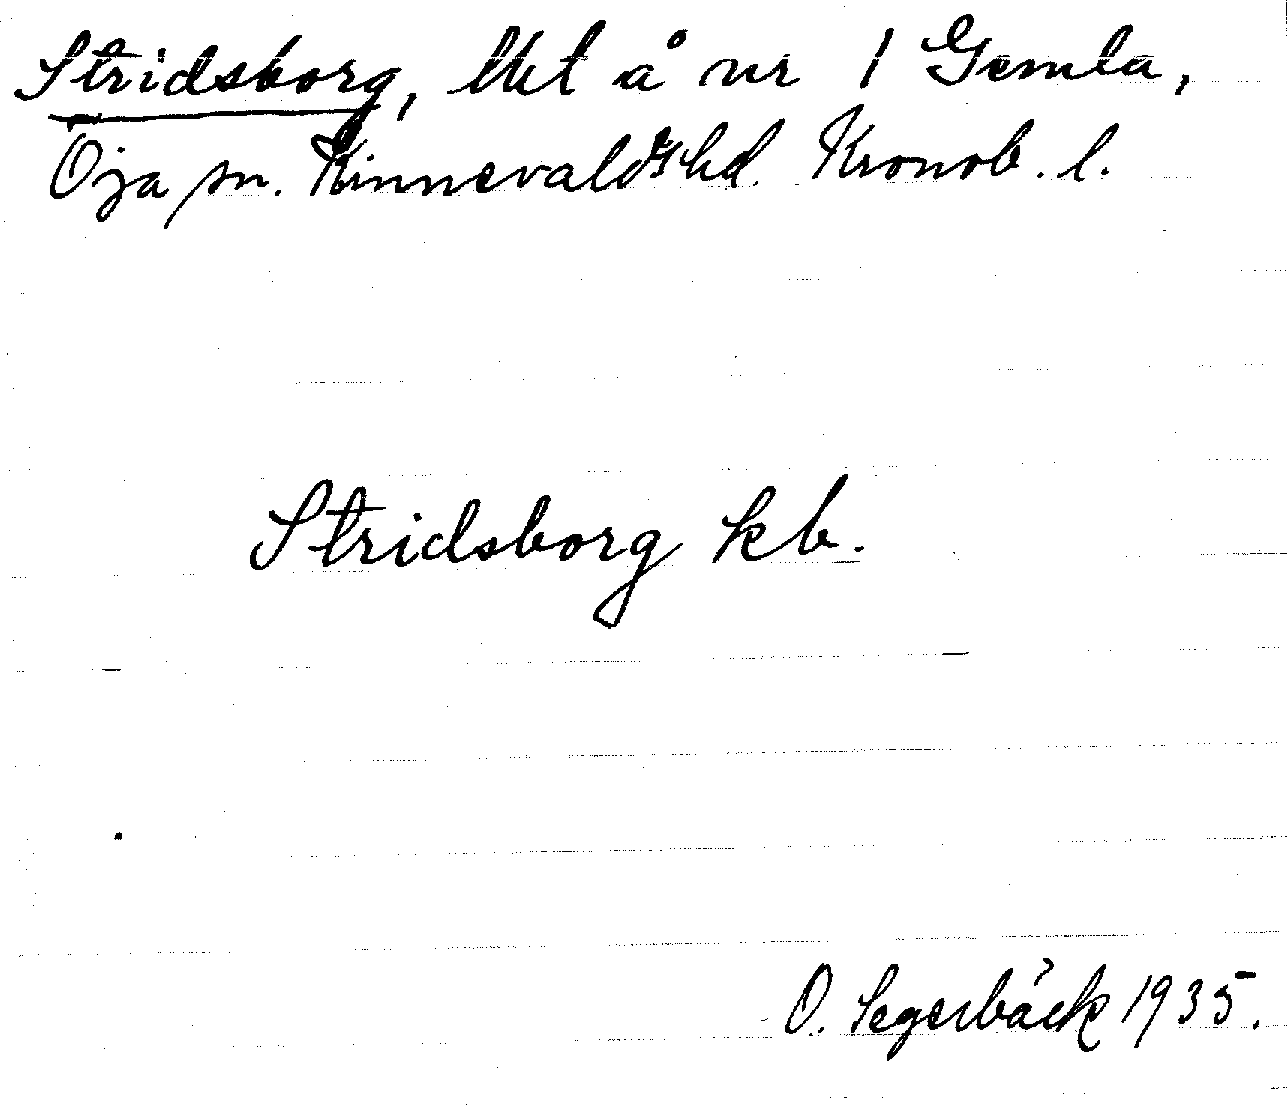 Stridsborg, lht å nr 1 Gemla,
Öja sn. Kinnevalds hd. Kronob. l.
Stridsborg kb.
O. Segerbäck 1935.